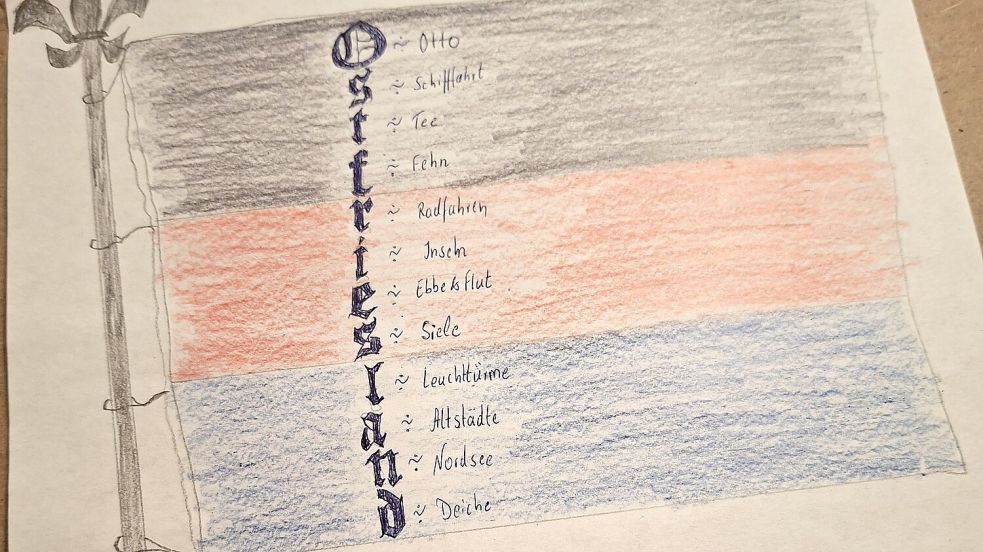 O ~ Otto
s ~ Schifffahrt
t ~ Tee
f ~ Fehn
r ~ Radfahren
i ~ Inseln
e ~ Ebbe & Flut
s ~ Siele
l ~ Leuchttürme
a ~ Altstädte
n ~ Nordsee
d ~ Deiche